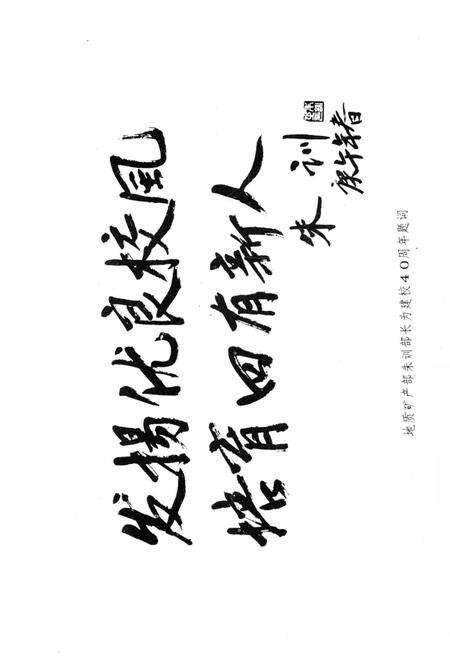 发扬优良校风
培育四有新人
朱训
庚午年春
地质矿产部朱训部长为建校40周年题词